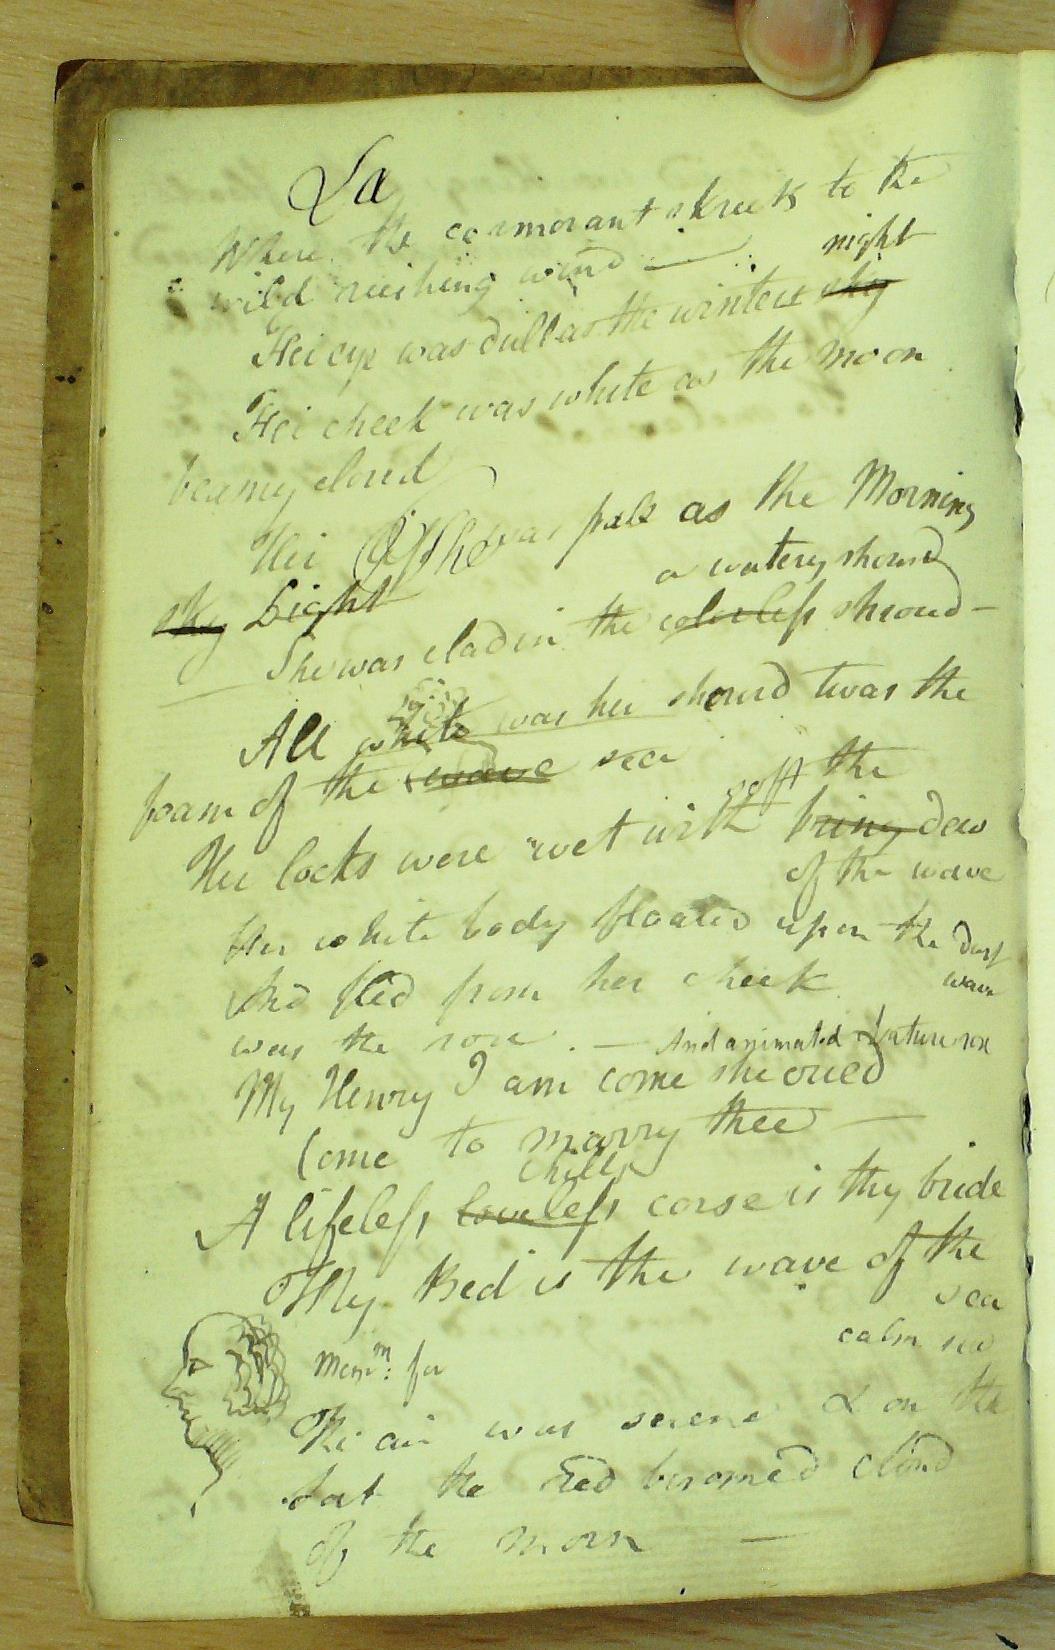 La
Where the cormorant skreeks to the
wild rushing wind —
night
Her eye was dull as the winters sky
Her cheek was white as the moon
beamy cloud
Her She was pale as the Morning
sky Light
a watery shroud
She was clad in the colorless shroud —
All white was her shroud twas the
foam of the wave sea
soft the
Her locks were wet with briny dew
of the wave
Her white body floated upon the
wave
And fled from her cheek
was the rose . — And animated Nature
My Henry I am come she cried
Come to marry thee —
chilly
A lifeless loveless corse is thy bride
My Bed is the wave of the
sea
calm sea
Memm: for
The air was serene & on the
Sat the red bosomed cloud
of the morn —